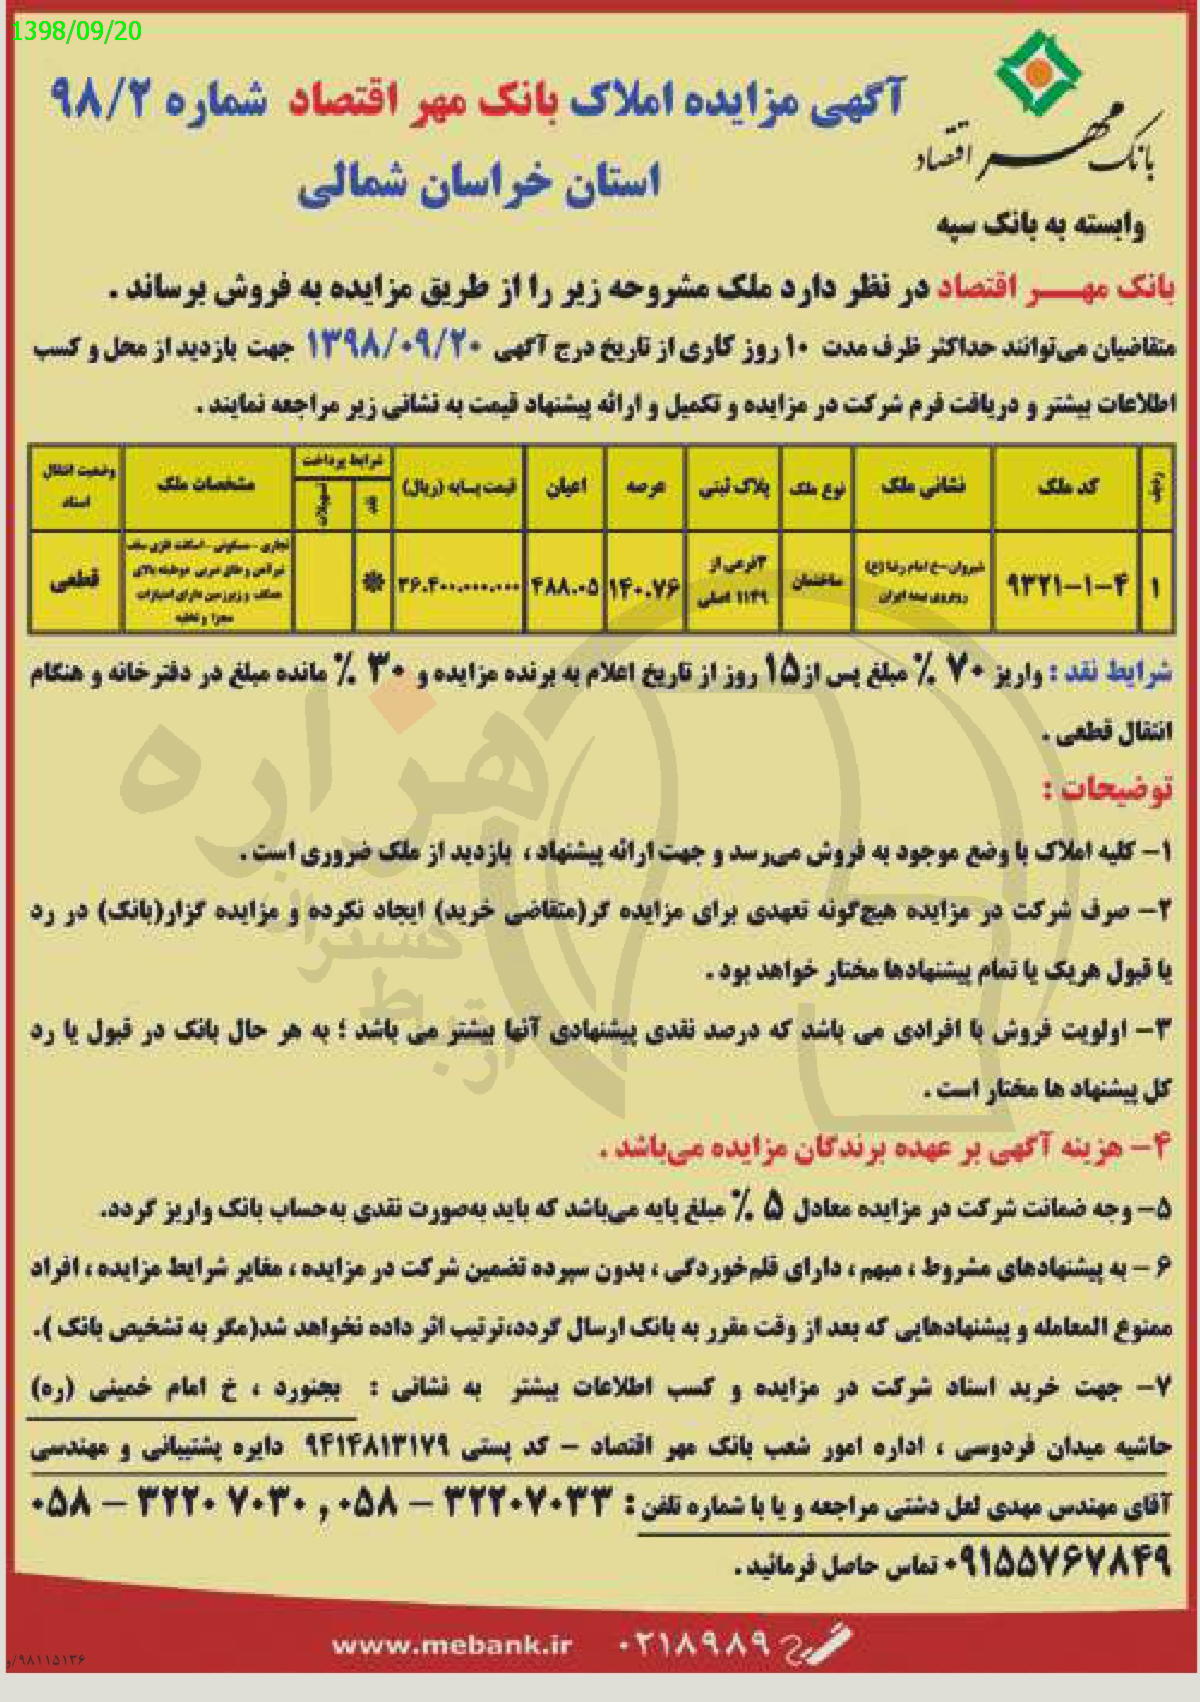 1398/09/20
بانک مهر اقتصاد
وابسته به بانک سپه
آگهی مزایده املاک بانک مهر اقتصاد شماره ۹۸/۲
استان خراسان شمالی
بانک مهـــر اقتصاد در نظر دارد ملک مشروحه زیر را از طریق مزایده به فروش برساند .
متقاضیان می‌توانند حداکثر ظرف مدت ۱۰ روز کاری از تاریخ درج آگهی ۱۳۹۸/۰۹/۲۰ جهت بازدید از محل و کسب
اطلاعات بیشتر و دریافت فرم شرکت در مزایده و تکمیل و ارائه پیشنهاد قیمت به نشانی زیر مراجعه نمایند .
ردیف کد ملک نشانی ملک نوع ملک پلاک ثبتی عرصه اعیان قیمت پـایه (ریال) شرایط پرداخت نقد تسهیلات مشخصات ملک وضعیت انتقال اسناد
۱ ۹۳۲۱-۱-۴ شیروان-خ امام رضا (ع) روبروی بیمه ایران ساختمان ۳فرعی از ۱۱۴۹ اصلی ۱۴۰.۷۶ ۴۸۸.۰۵ ۳۶.۴۰۰.۰۰۰.۰۰۰ ❋ تجاری - مسکونی - اسکلت فلزی سقف تیرآهن و طاق ضربی دوطبقه بالای همکف و زیرزمین دارای امتیازات مجزا و تخلیه قطعی
شرایط نقد : واریز ۷۰ ٪ مبلغ پس از ۱۵ روز از تاریخ اعلام به برنده مزایده و ۳۰ ٪ مانده مبلغ در دفترخانه و هنگام
انتقال قطعی .
توضیحات :
۱- کلیه املاک با وضع موجود به فروش می‌رسد و جهت ارائه پیشنهاد ، بازدید از ملک ضروری است .
۲- صرف شرکت در مزایده هیچ‌گونه تعهدی برای مزایده گر(متقاضی خرید) ایجاد نکرده و مزایده گزار(بانک) در رد
یا قبول هریک یا تمام پیشنهادها مختار خواهد بود .
۳- اولویت فروش با افرادی می باشد که درصد نقدی پیشنهادی آنها بیشتر می باشد ؛ به هر حال بانک در قبول یا رد
کل پیشنهاد ها مختار است .
۴- هزینه آگهی بر عهده برندگان مزایده می‌باشد .
۵- وجه ضمانت شرکت در مزایده معادل ۵ ٪ مبلغ پایه می‌باشد که باید به‌صورت نقدی به‌حساب بانک واریز گردد.
۶ - به پیشنهادهای مشروط ، مبهم ، دارای قلم‌خوردگی ، بدون سپرده تضمین شرکت در مزایده ، مغایر شرایط مزایده ، افراد
ممنوع المعامله و پیشنهادهایی که بعد از وقت مقرر به بانک ارسال گردد،ترتیب اثر داده نخواهد شد(مگر به تشخیص بانک ).
۷- جهت خرید اسناد شرکت در مزایده و کسب اطلاعات بیشتر به نشانی : بجنورد ، خ امام خمینی (ره)
حاشیه میدان فردوسی ، اداره امور شعب بانک مهر اقتصاد - کد پستی ۹۴۱۴۸۱۳۱۷۹ دایره پشتیبانی و مهندسی
آقای مهندس مهدی لعل دشتی مراجعه و یا با شماره تلفن : ۳۲۲۰۷۰۳۳ - ۰۵۸ , ۳۲۲۰۷۰۳۰ - ۰۵۸
۰۹۱۵۵۷۶۷۸۴۹ تماس حاصل فرمائید .
هزاره
www.mebank.ir ۰۲۱۸۹۸۹
۹۸۱۱۵۱۳۶/و